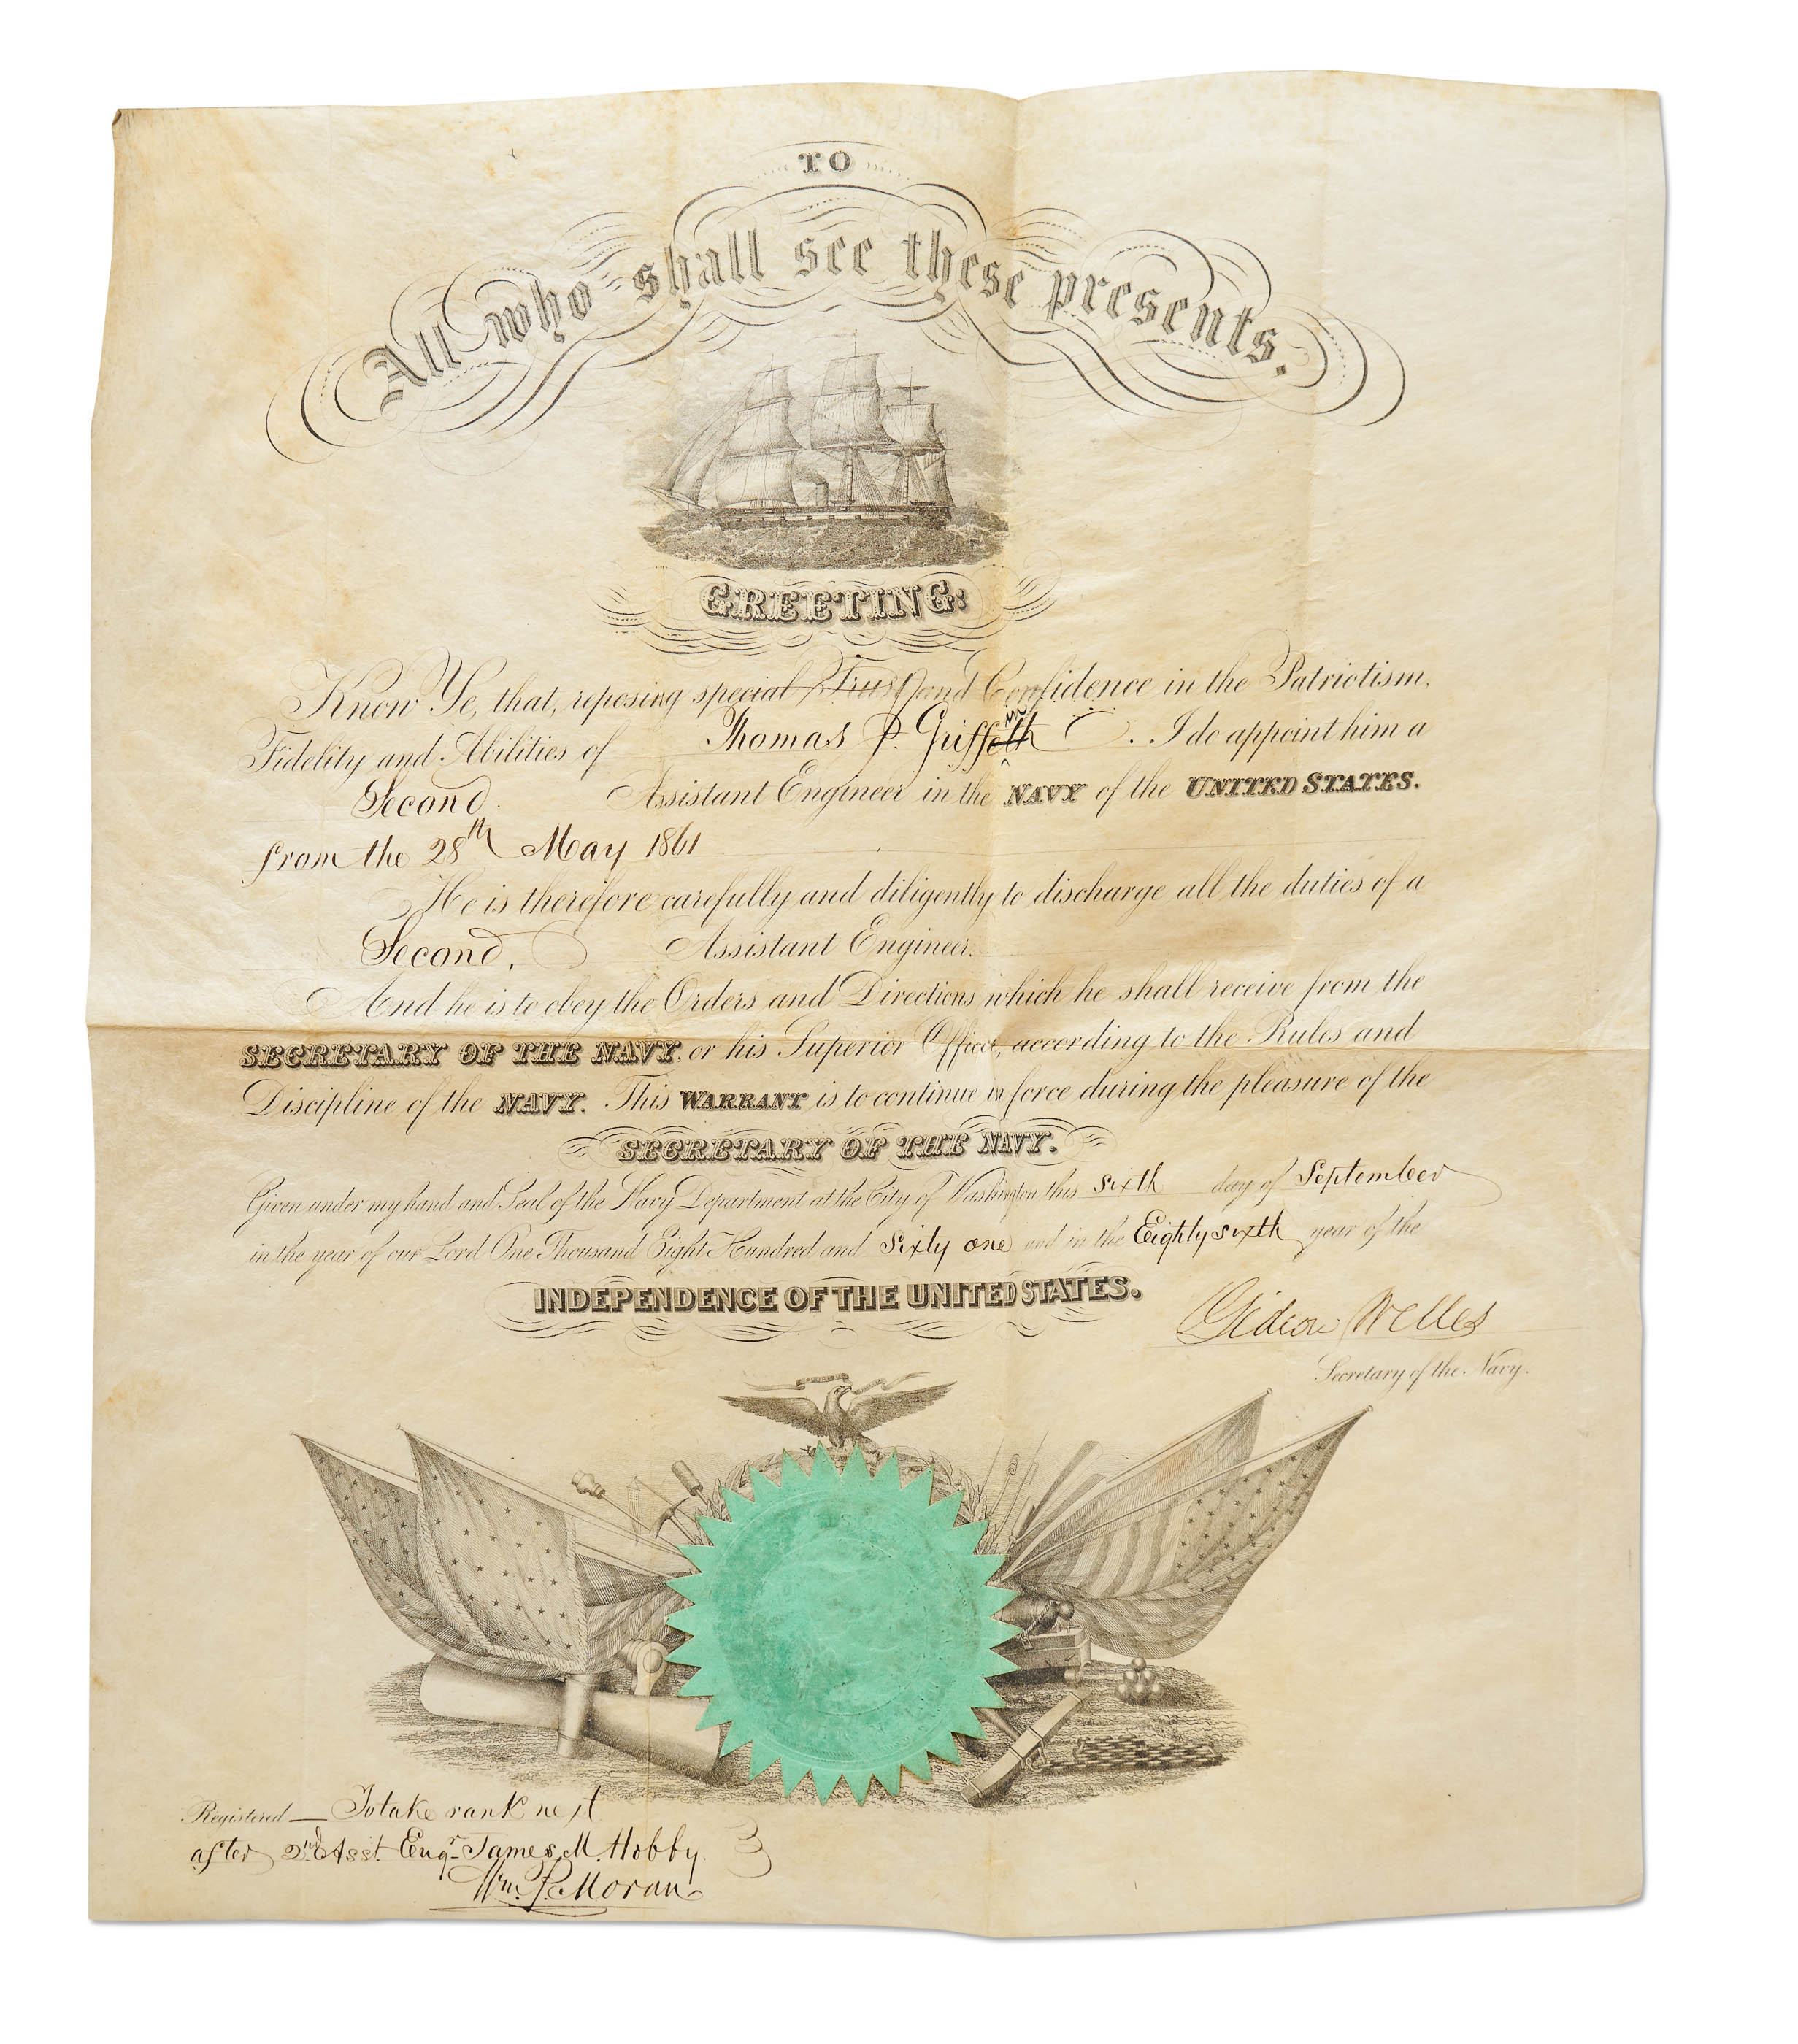 TO
All who shall see these presents.
GREETING:
Know Ye, that, reposing special Trust and Confidence in the Patriotism,
Fidelity and Abilities of Thomas P. Griffith. I do appoint him a
Second Assistant Engineer in the NAVY of the UNITED STATES.
from the 28th May 1861
He is therefore carefully and diligently to discharge all the duties of a
Second, Assistant Engineer.
And he is to obey the Orders and Directions which he shall receive from the
SECRETARY OF THE NAVY. or his Superior Officer, according to the Rules and
Discipline of the NAVY. This WARRANT is to continue in force during the pleasure of the
SECRETARY OF THE NAVY.
Given under my hand and Seal of the Navy Department at the City of Washington this sixth day of September
in the year of our Lord One Thousand Eight Hundred and Sixty one and in the Eighty sixth year of the
INDEPENDENCE OF THE UNITED STATES.
Gideon Welles
Secretary of the Navy.
Registered — To take rank next
after 2nd Asst. Engr. James M. Hobby.
Wm. P. Moran